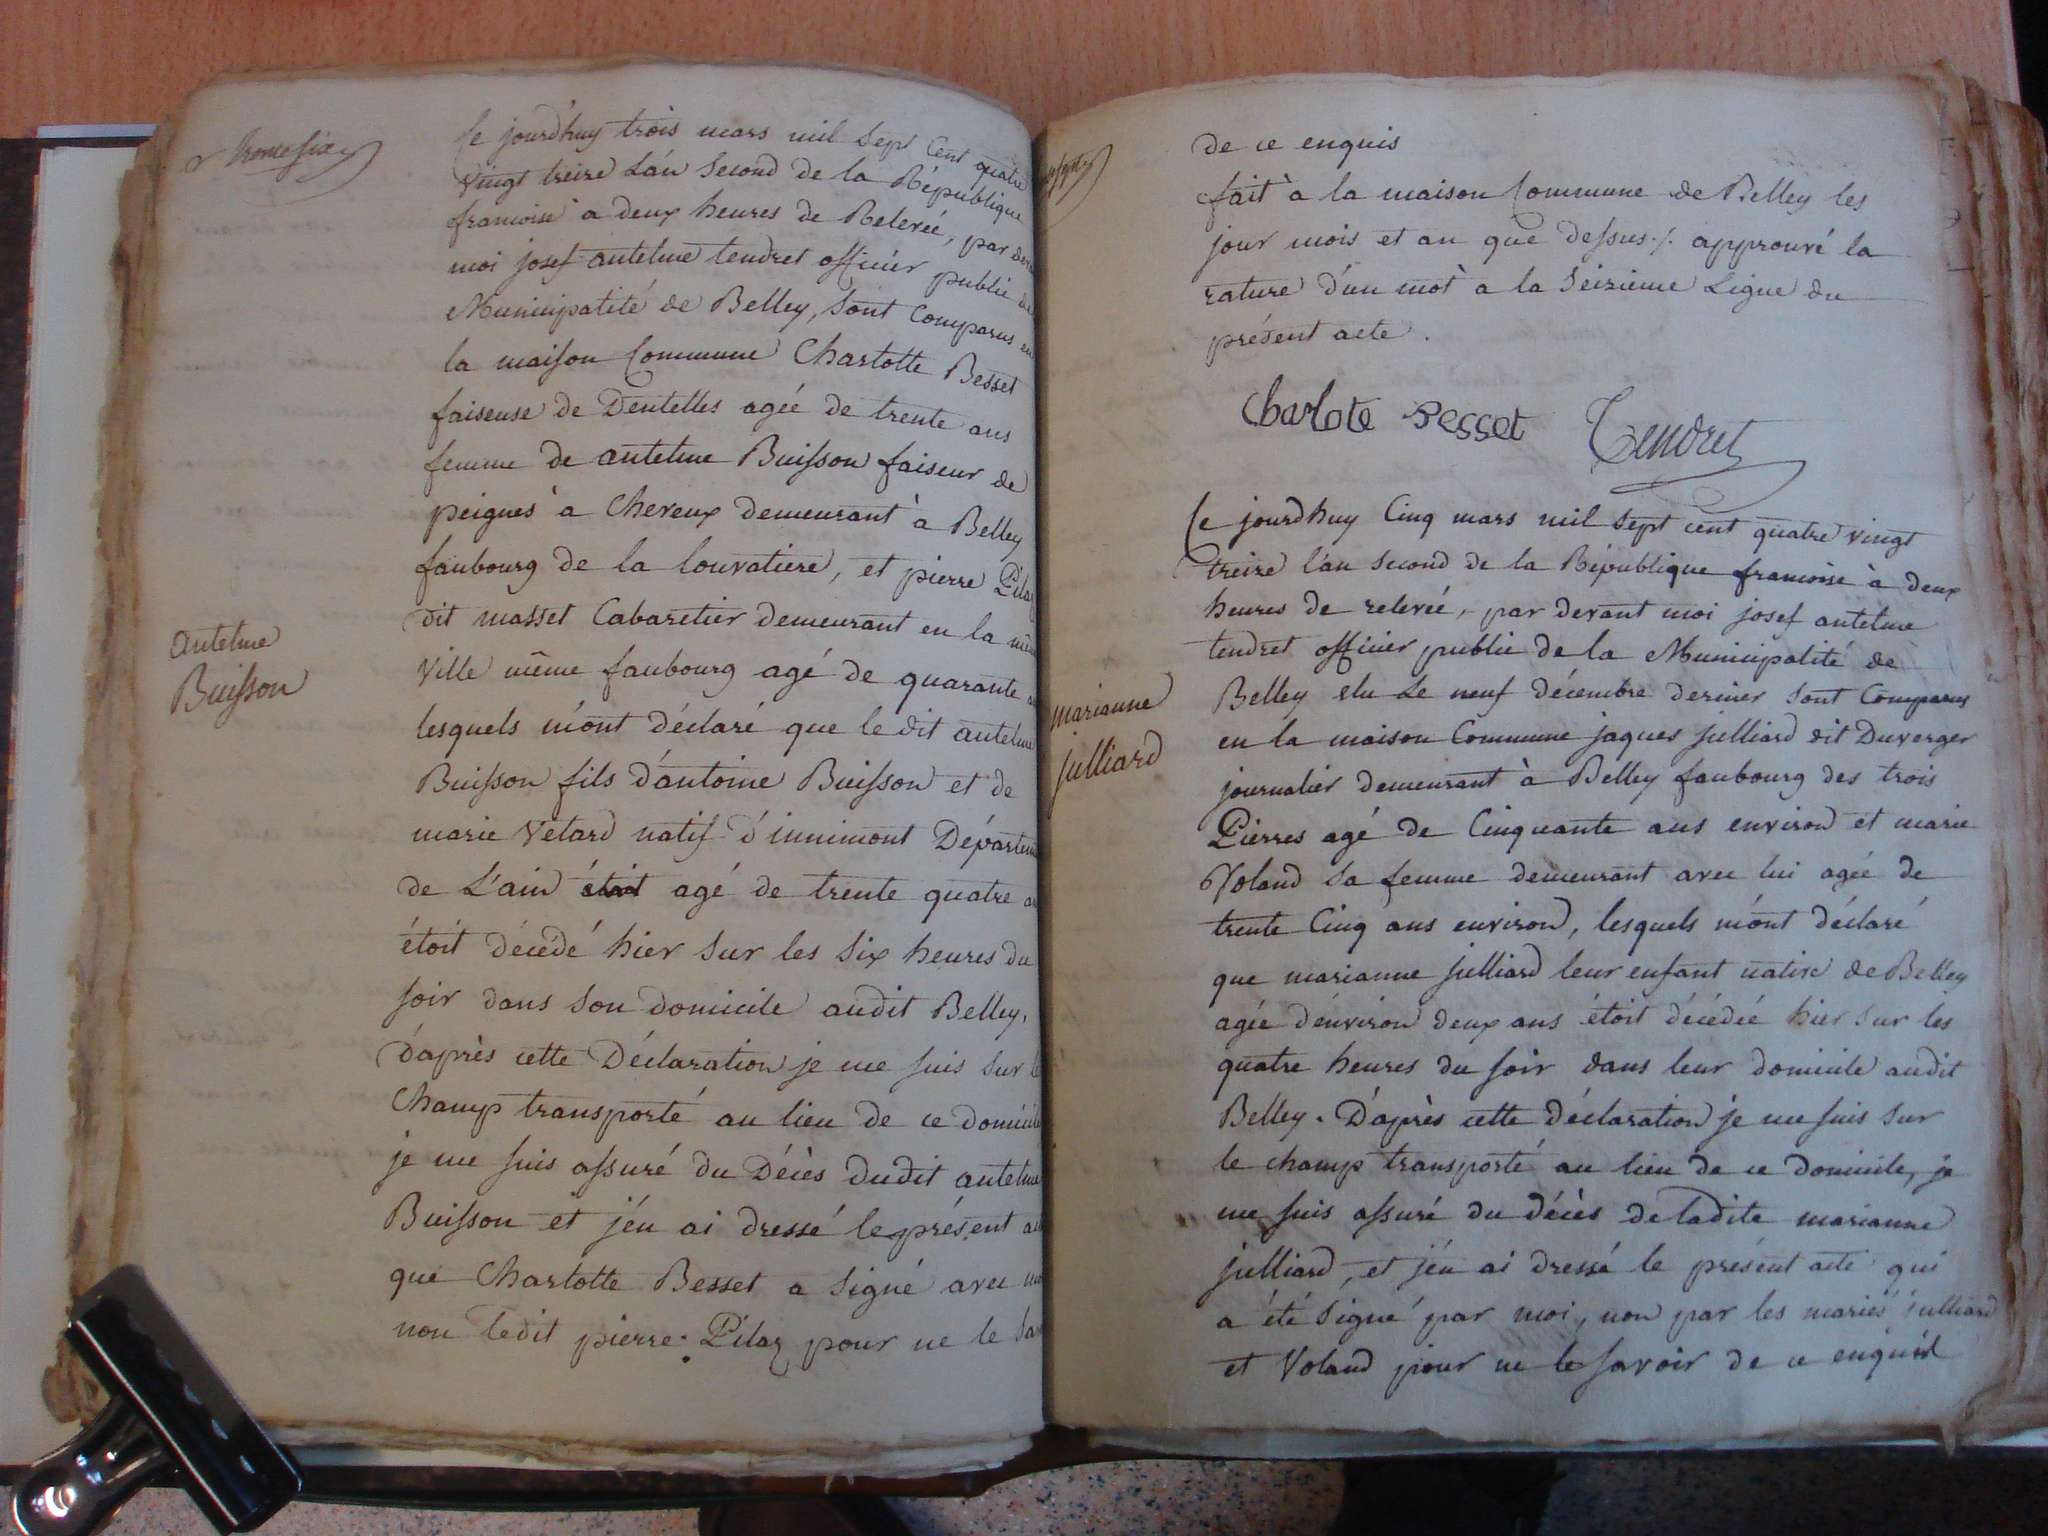 Ce jourd'huy trois mars mil sept Cent quatre
vingt treize L'an Second de la République
francoise à deux heures de Relevée, par
moi josef antelme tendret officier public
Municipalité de Belley, sont Comparus en
la maison Commune Charlotte Besset
faiseuse de Dentelles agée de trente ans
femme de antelme Buisson faiseur de
peignes à Cheveux demeurant à Belley
faubourg de la louvatiere, et pierre Pilaz
dit masset Cabaretier demeurant en la
Ville même faubourg agé de quarante
lesquels m'ont déclaré que le dit antelme
Buisson fils d'antoine Buisson et de
marie Vetard natif d'innimont Départem
de L'ain agé de trente quatre
étoit décédé hier sur les six heures du
soir dans son domicile audit Belley,
d'après cette Déclaration je me suis sur
Champ transporté au lieu de ce domicile
je me suis assuré du Décès dudit antelme
Buisson et j'en ai dressé le présent
que Charlotte Besset a signé avec
non ledit pierre Pilaz pour ne le
antelme
Buisson
de ce enquis
fait à la maison Commune de Belley les
jour mois et an que dessus ./. approuvé la
rature d'un mot à la seizieme Ligne du
présent acte.
Charlote Besset Tendret
Ce jourdhuy Cinq mars mil sept cent quatre vingt
treize l'an second de la République francoise à deux
heures de relevée, par devant moi josef antelme
tendret officier public de la Municipalité de
Belley elu Le neuf décembre dernier sont Comparus
en la maison Commune jaques julliard dit Duverger
journalier demeurant à Belley faubourg des trois
Pierres agé de Cinquante ans environ et marie
Voland sa femme demeurant avec lui agée de
trente Cinq ans environ, lesquels m'ont déclaré
que marianne julliard leur enfant native de Belley
agée d'environ deux ans étoit décédée hier sur les
quatre heures du soir dans leur domicile audit
Belley. D'après cette déclaration je me suis sur
le champ transporté au lieu de ce domicile, je
me suis assuré du décès de ladite marianne
julliard, et j'en ai dressé le présent acte qui
a été signé par moi, non par les mariés julliard
et Voland pour ne le savoir de ce enquis
marianne
julliard